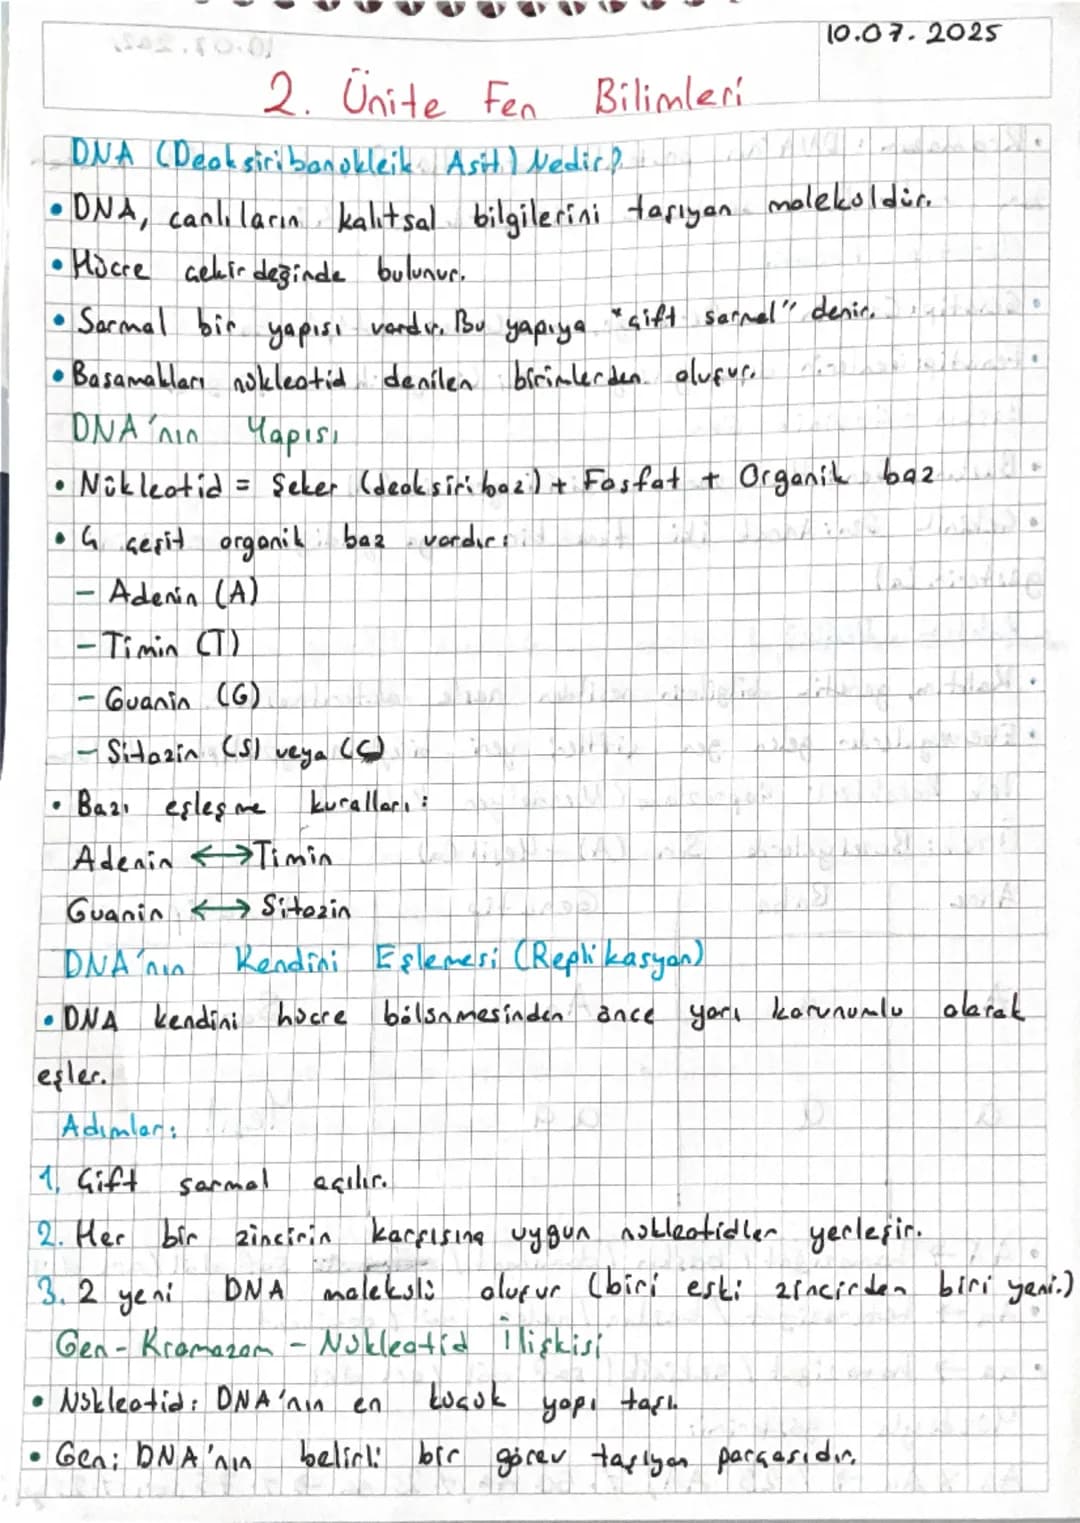 10.07.2025
2. Ünite Fen Bilimleri
DNA (Deoksiribonükleik Asit) Nedir?
• DNA, canlıların kalıtsal bilgilerini taşıyan moleküldür.
• Hücre çekirdeğinde bulunur.
• Sarmal bir yapısı vardır. Bu yapıya "çift sarmal" denir.
• Basamakları nükleotid denilen birimlerden oluşur.
DNA'nın Yapısı
• Nükleotid = Şeker (deoksiriboz) + Fosfat + Organik baz
• 4 çeşit organik baz vardır:
- Adenin (A)
- Timin (T)
- Guanin (G)
- Sitozin (S) veya (C)
• Bazı eşleşme kuralları:
Adenin ↔ Timin
Guanin ↔ Sitozin
DNA'nın Kendini Eşlemesi (Replikasyon)
• DNA kendini hücre bölünmesinden önce yarı korunumlu olarak
eşler.
Adımlar:
1. Çift sarmal açılır.
2. Her bir zincirin karşısına uygun nükleotidler yerleşir.
3. 2 yeni DNA molekülü oluşur (biri eski zincirden biri yeni.)
Gen - Kromozom - Nükleotid İlişkisi
• Nükleotid: DNA'nın en küçük yapı taşı.
• Gen: DNA'nın belirli bir görev taşıyan parçasıdır.